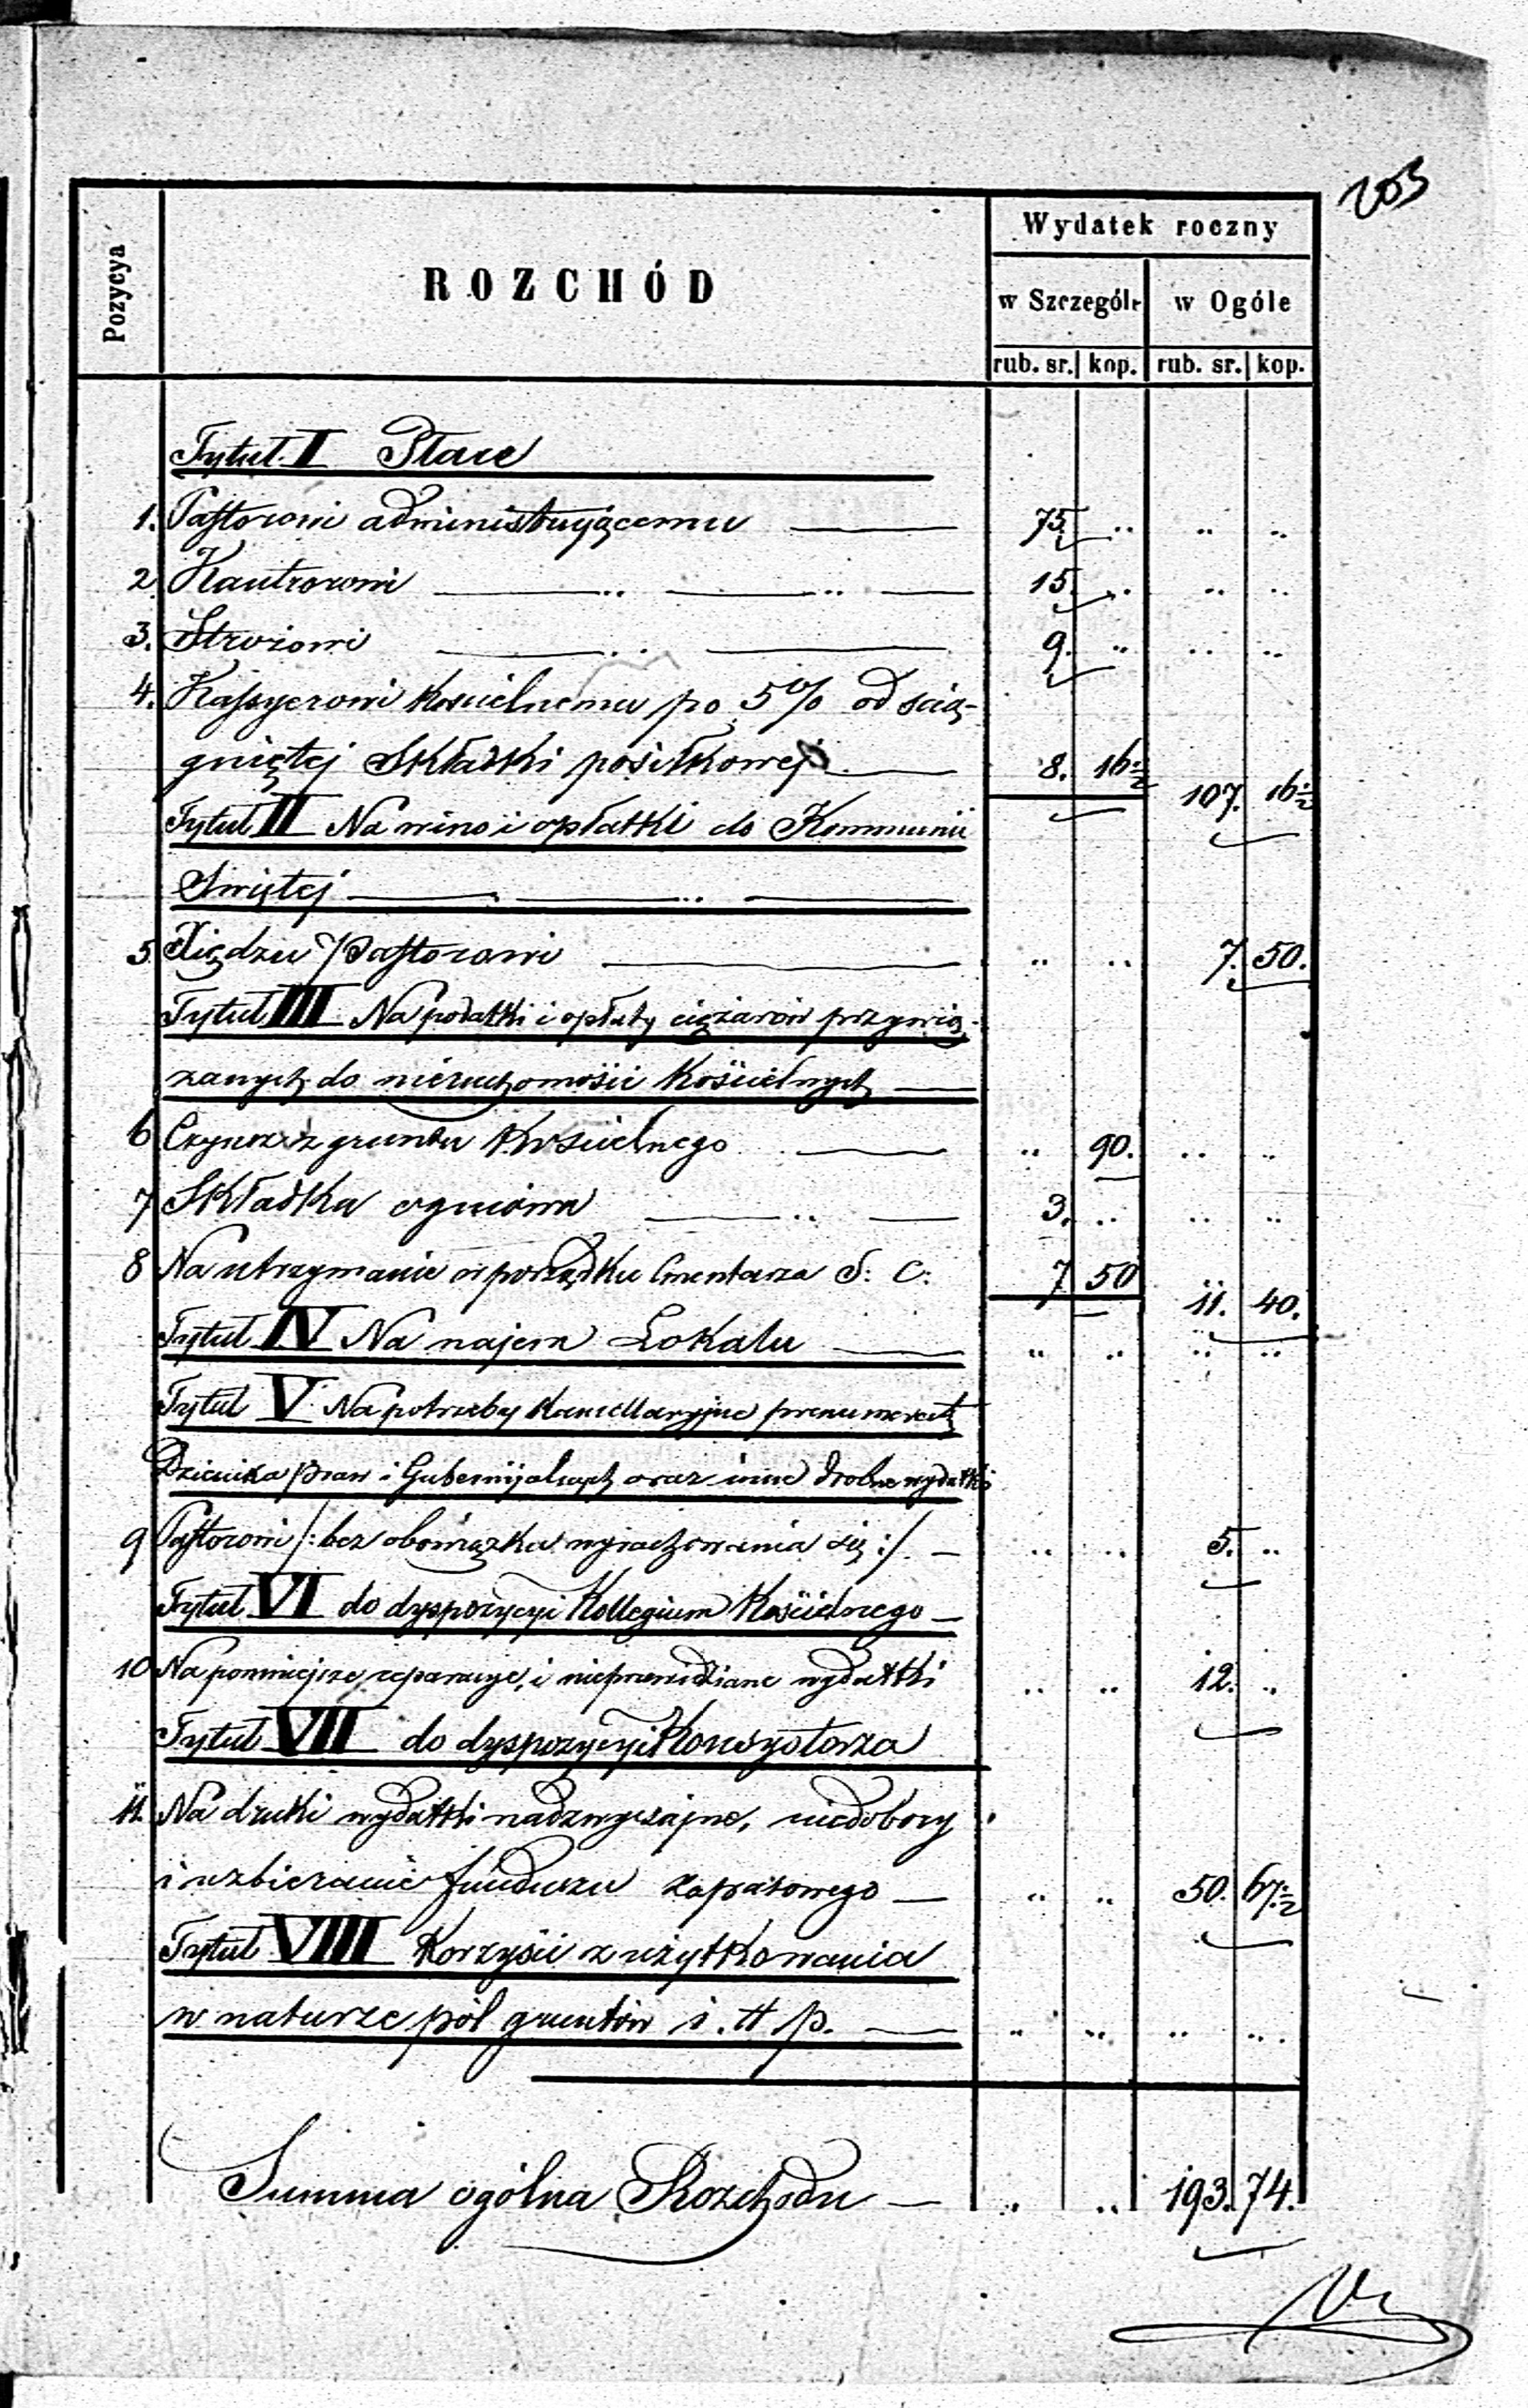 203
Pozycya
ROZCHÓD
Wydatek roczny
w Szczególe w Ogóle
rub. sr. kop. rub. sr. kop.
Tytuł I Płace
1. Pastorowi administrującemu 75. .. .. ..
2. Kantorowi 15. .. .. ..
3. Strożowi 9. .. .. ..
4. Kassyerowi Kościelnemu po 5% od ścią-
gniętej Składki posiłkowej 8. 16 1/2 107. 16 1/2
Tytuł II Na wino i opłatki do Kommunii
Świętej
5 Xiędzu Pastorowi .. .. 7. 50.
Tytuł III Na podatki i opłaty ciężarów przywią-
zanych do nieruchomości Kościelnych
6 Czynsz z gruntu Kościelnego .. 90. .. ..
7 Składka ogniowa 3. .. .. ..
8 Na utrzymanie w porządku Cmentarza S: C: 7 50 11. 40.
Tytuł IV Na najem Lokalu .. .. .. ..
Tytuł V Na potrzeby Kancellaryjne prenumeratę
Dziennika praw i Gubernijalnych oraz inne drobne wydatki
9 Pastorowi /: bez obowiązku wyrachowania się :/ .. .. 5. ..
Tytuł VI do dyspozycyi Kollegium Kościelnego
10 Na pomniejsze reparacye, i nieprzewidziane wydatki .. .. 12. ..
Tytuł VII do dyspozycyi Konsystorza
11. Na druki wydatki nadzwyczajne, niedobory
i uzbieranie funduszu zapasowego .. .. 50. 67 1/2
Tytuł VIII Korzyści z użytkowania
w naturze pól gruntów i. t. p. .. .. .. ..
Summa ogólna Rozchodu .. .. 193. 74.